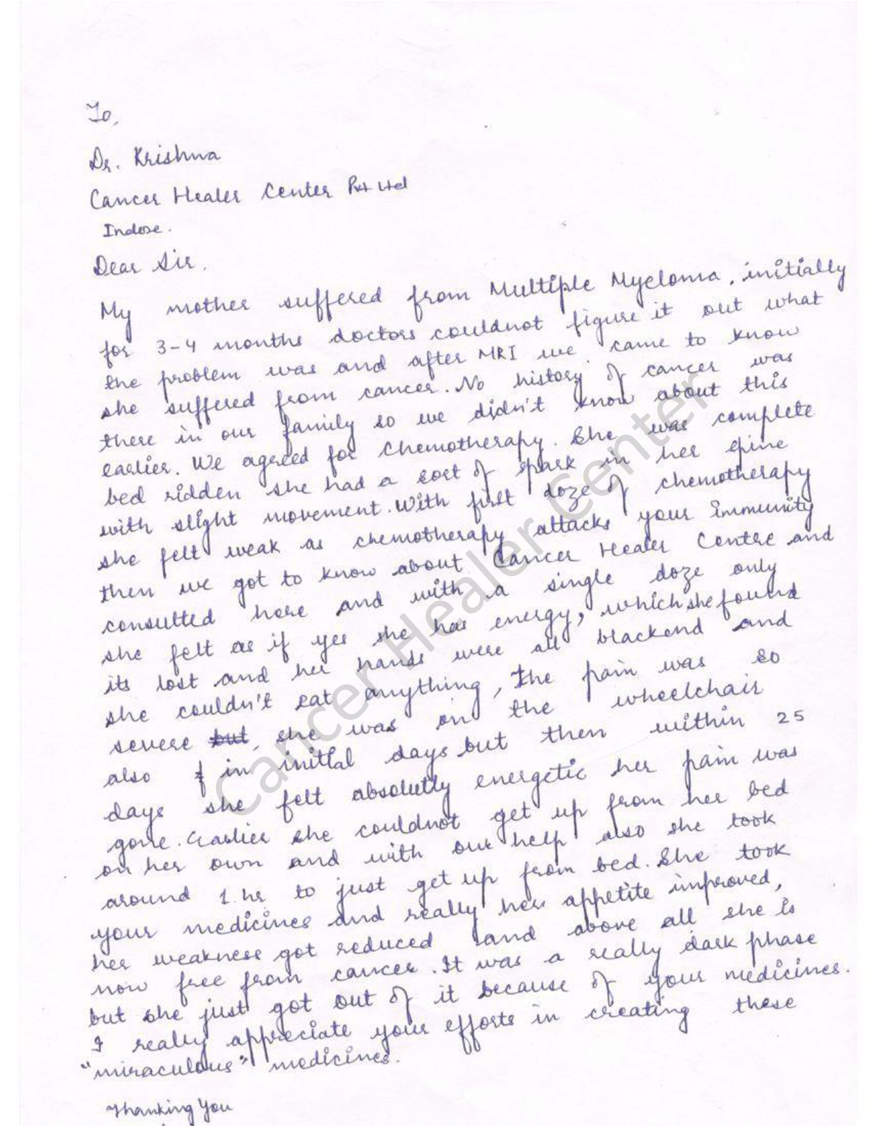 To,
Dr. Krishna
Cancer Healer Center Pvt Ltd
Indore.
Dear Sir,
My mother suffered from Multiple Myeloma, initially
for 3-4 months doctors couldnot figure it out what
the problem was and after MRI we came to know
she suffered from cancer. No history of cancer was
there in our family so we didn't know about this
earlier. We agreed for Chemotherapy. She was complete
bed ridden she had a sort of spark in her spine
with slight movement. With first doze of chemotherapy
she felt weak as chemotherapy attacks your immunity
then we got to know about Cancer Healer Centre and
consulted here and with a single doze only
she felt as if yes she has energy, which she found
its lost and her hands were all blackend and
she couldn't eat anything, the pain was so
severe but, she was on the wheelchair
also in initial days but then within 25
days she felt absolutly energetic her pain was
gone. Earlier she couldnot get up from her bed
on her own and with our help also she took
around 1 hr to just get up from bed. She took
your medicines and really her appetite improved,
her weakness got reduced and above all she is
now free from cancer. It was a really dark phase
but she just got out of it because of your medicines.
I really appreciate your efforts in creating these
"miraculous" medicines.
Thanking You
Cancer Healer Center